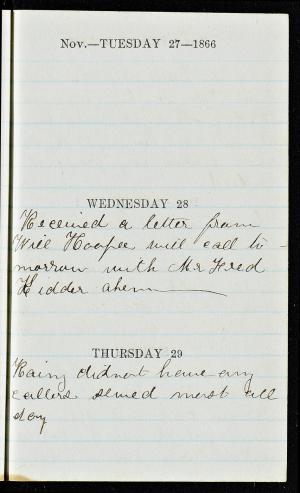 Nov.—TUESDAY 27—1866
WEDNESDAY 28
Received a letter from
Will Hooper will call to-
morrow with Mr Fred
Kidder ahem
THURSDAY 29
Rainy did not have any
callers sewed most all
day